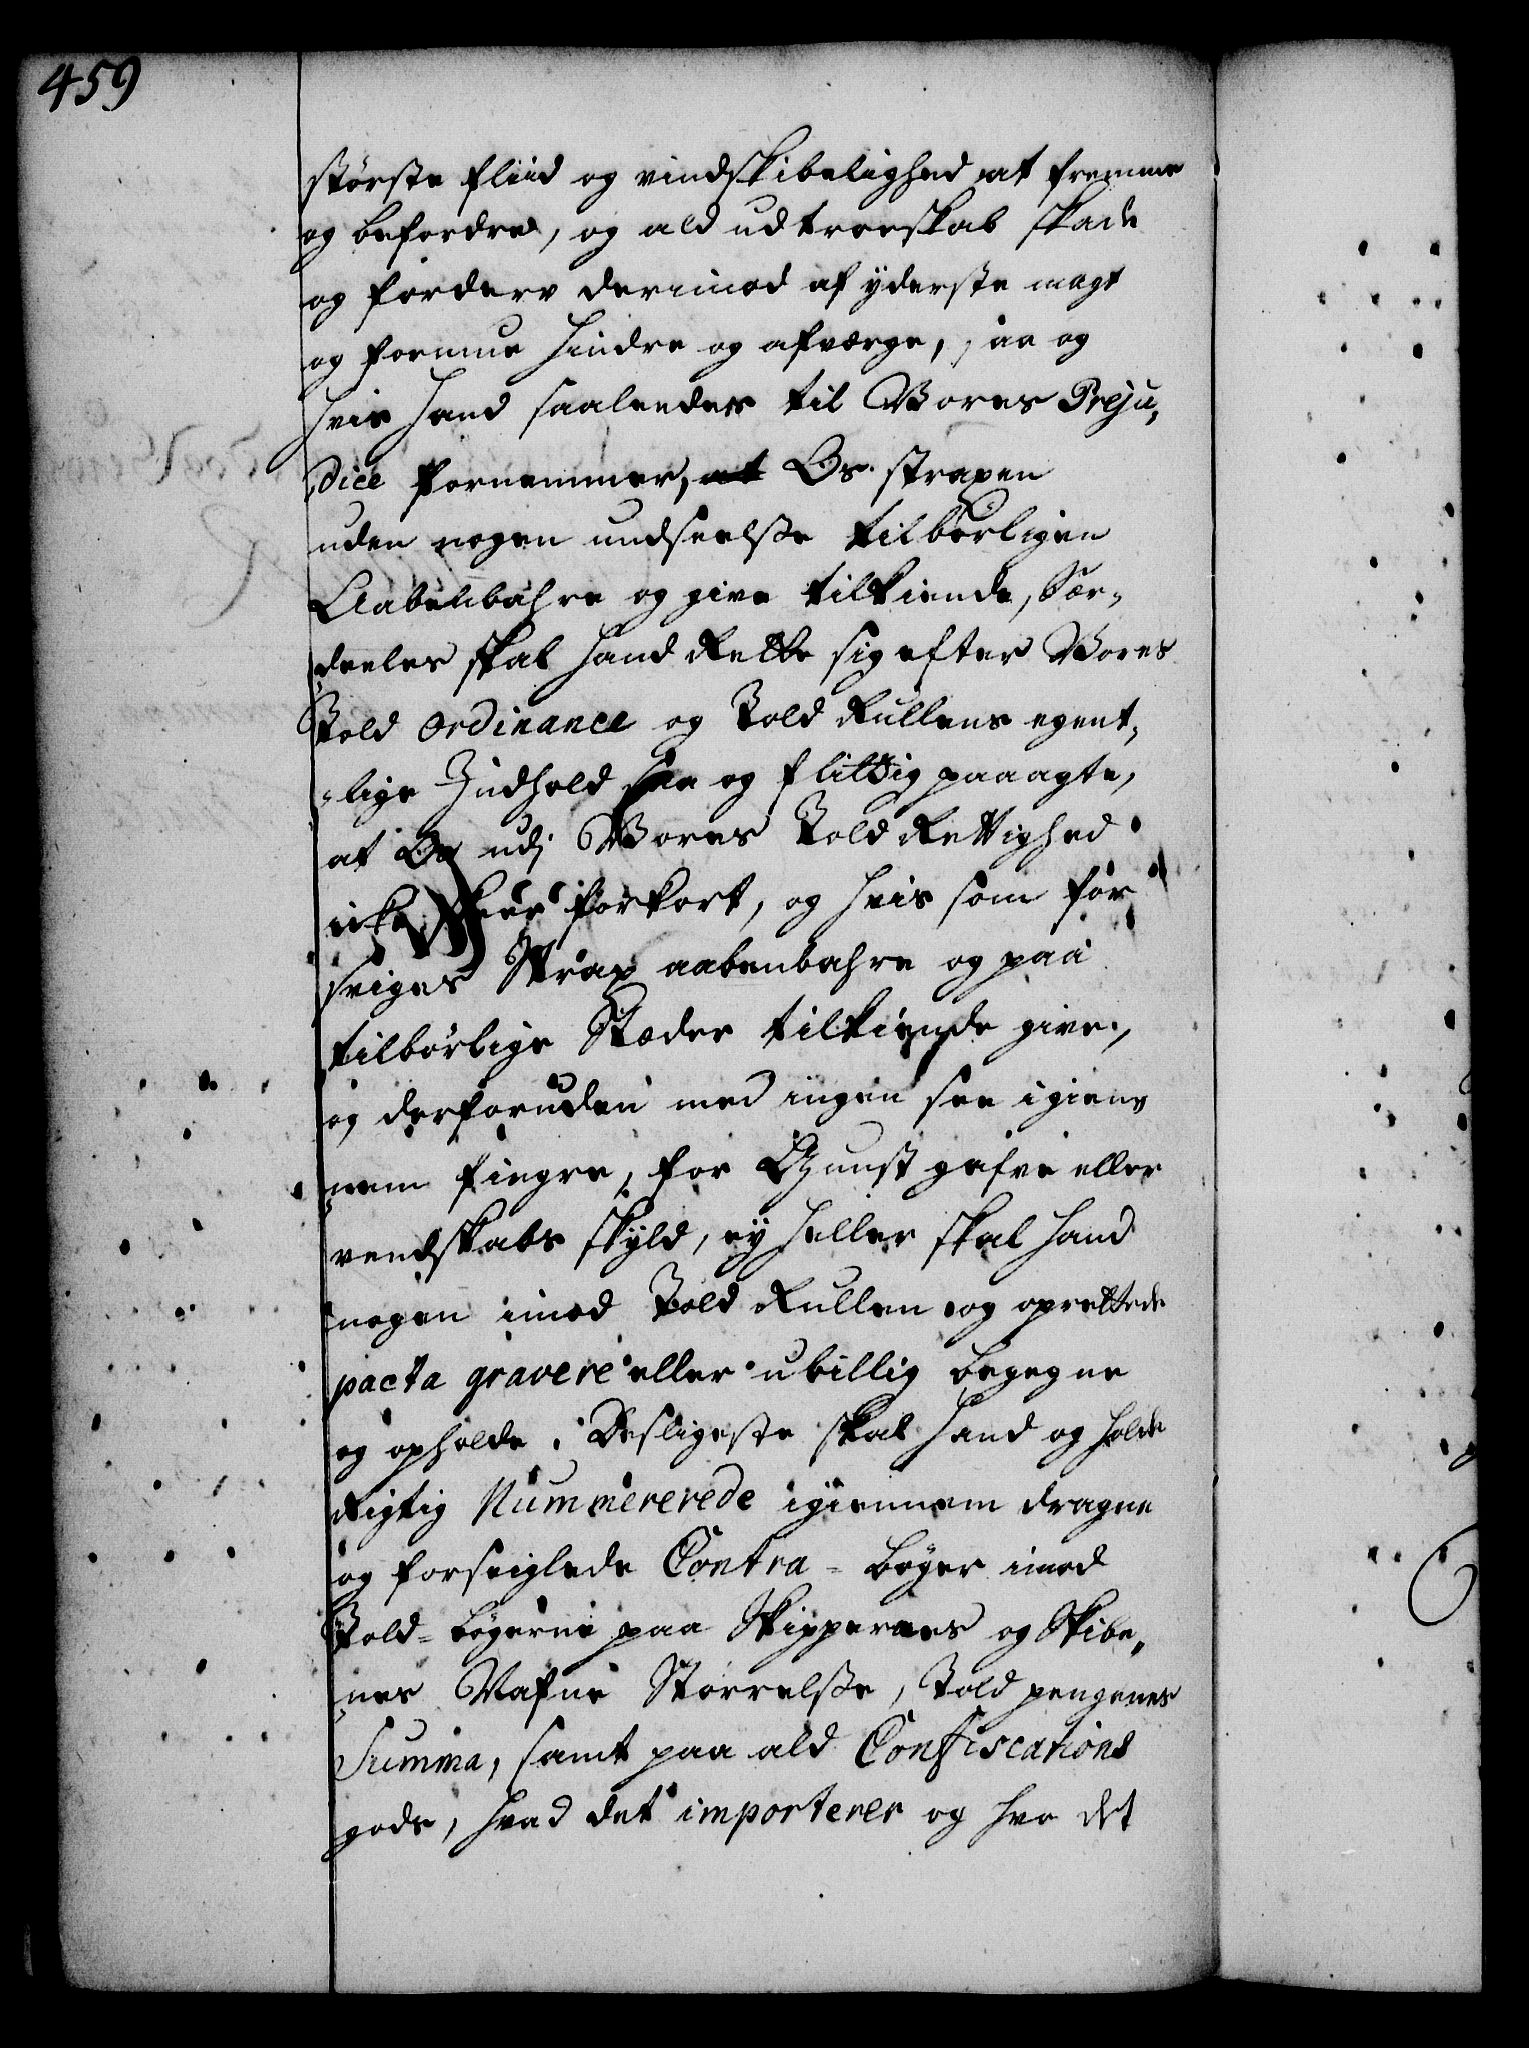 459
største fliid og vindskibelighed at fremme
og befordre, og ald udtroeskab skade
og forderv derimod af yderste magt
og formue hindre og afværge, jaa og
hvis hand saaledes til Vores Preju„
dice fornemmer, at Os strapen
uden nogen undseelsse tilbørligen
Aabenbahre og give tilkiende, Sær„
deeles skal hand Rette sig efter Vores
Told Ordinance og Told Rullens egent„
„lige Indhold see og flittig paaagte,
at Os udj Vores Told Rettighed
icke skeer forkort, og hvis som for
sviges Strax aabenbahre og paa
tilbørlige Stæder tilkiende give,
og derforuden med ingen see igiens
nem fingre, for Gunst gafve eller
vendskabs skyld, ey heller skal hand
nogen imod Told Rullen og oprettede
pacta gravere eller ubillig begegne
og opholde. Desligeste skal hand og holde
Rigtig Nummererede igiennem dragne
og forseiglede Contra - bøger imod
Told- bøgerne paa Skippernes og Skibe„
nes Nafne Størrelsse, Told pengenes
Summa, samt paa ald Confiscations
gods, hvad det importerer og hvo det